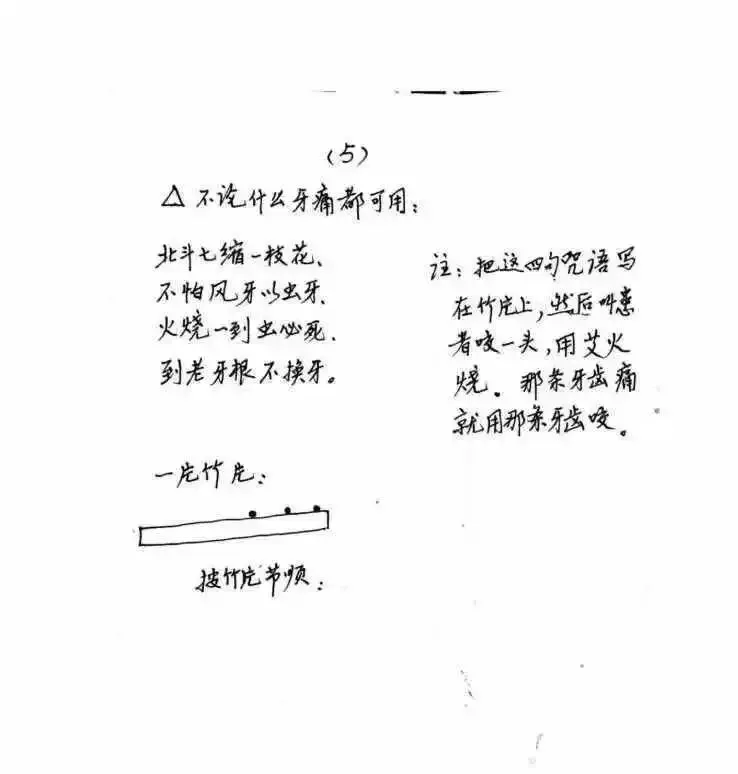 (5)
△ 不论什么牙痛都可用:
北斗七缩一枝花、
不怕风牙以虫牙、
火烧一到虫必死、
到老牙根不换牙。
注:把这四句咒语写
在竹片上,然后叫患
者咬一头,用艾火
烧。那条牙齿痛
就用那条牙齿咬。
一片竹片:
按竹片节顺: